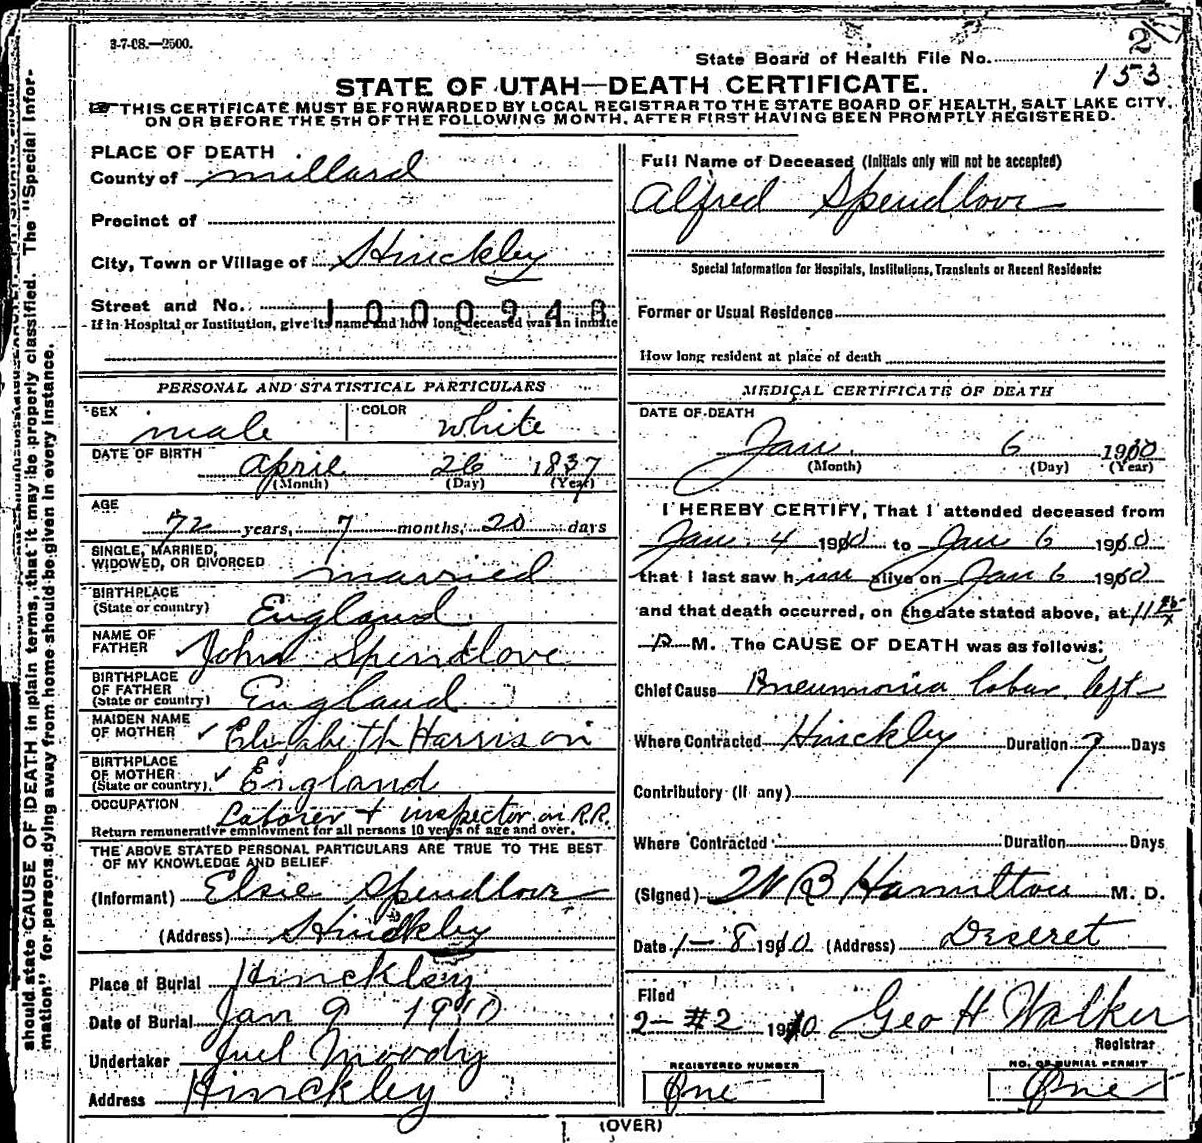 3-7-08.—2500.
2
State Board of Health File No.
153
STATE OF UTAH—DEATH CERTIFICATE.
THIS CERTIFICATE MUST BE FORWARDED BY LOCAL REGISTRAR TO THE STATE BOARD OF HEALTH, SALT LAKE CITY,
ON OR BEFORE THE 5TH OF THE FOLLOWING MONTH, AFTER FIRST HAVING BEEN PROMPTLY REGISTERED.
PLACE OF DEATH
County of Millard
Precinct of
City, Town or Village of Hinckley
Street and No. 1000948
If in Hospital or Institution, give its name and how long deceased was an inmate
PERSONAL AND STATISTICAL PARTICULARS
SEX male COLOR white
DATE OF BIRTH April 26 1837
(Month) (Day) (Year)
AGE
72 years, 7 months, 20 days
SINGLE, MARRIED,
WIDOWED, OR DIVORCED married
BIRTHPLACE
(State or country) England
NAME OF
FATHER John Spendlove
BIRTHPLACE
OF FATHER
(State or country) England
MAIDEN NAME
OF MOTHER Elizabeth Harrison
BIRTHPLACE
OF MOTHER
(State or country) England
OCCUPATION Laborer + inspector on R.R.
Return remunerative employment for all persons 10 years of age and over.
THE ABOVE STATED PERSONAL PARTICULARS ARE TRUE TO THE BEST
OF MY KNOWLEDGE AND BELIEF
(Informant) Elsie Spendlove
(Address) Hinckley
Place of Burial Hinckley
Date of Burial Jan 9 1910
Undertaker Juel Moody
Address Hinckley
Full Name of Deceased (Initials only will not be accepted)
Alfred Spendlove
Special Information for Hospitals, Institutions, Transients or Recent Residents:
Former or Usual Residence
How long resident at place of death
MEDICAL CERTIFICATE OF DEATH
DATE OF DEATH
Jan. 6 1910
(Month) (Day) (Year)
I HEREBY CERTIFY, That I attended deceased from
Jan. 4 1910 to Jan 6 1910
that I last saw him alive on Jan 6 1910
and that death occurred, on the date stated above, at 11
P M. The CAUSE OF DEATH was as follows:
Chief Cause Pneumonia lobar left
Where Contracted Hinckley Duration 7 Days
Contributory (If any)
Where Contracted Duration Days
(Signed) W B Hamilton M. D.
Date 1-8 1910 (Address) Deseret
Filed
2-#2 1910 Geo H Walker
Registrar
REGISTERED NUMBER
One
NO. OF BURIAL PERMIT
One
(OVER)
should state CAUSE OF DEATH in plain terms, that it may be properly classified. The "Special Infor-
mation" for persons dying away from home should be given in every instance.